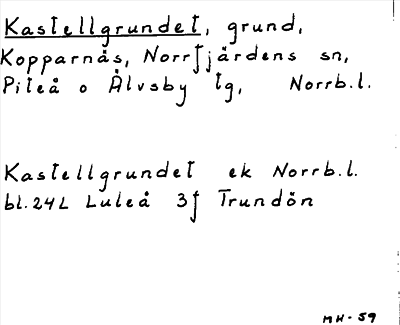 Kastellgrundet, grund,
Kopparnäs, Norrfjärdens sn,
Piteå o Älvsby tg, Norrb.l.
Kastellgrundet ek Norrb.l.
bl.24L Luleå 3j Trundön
MH-59